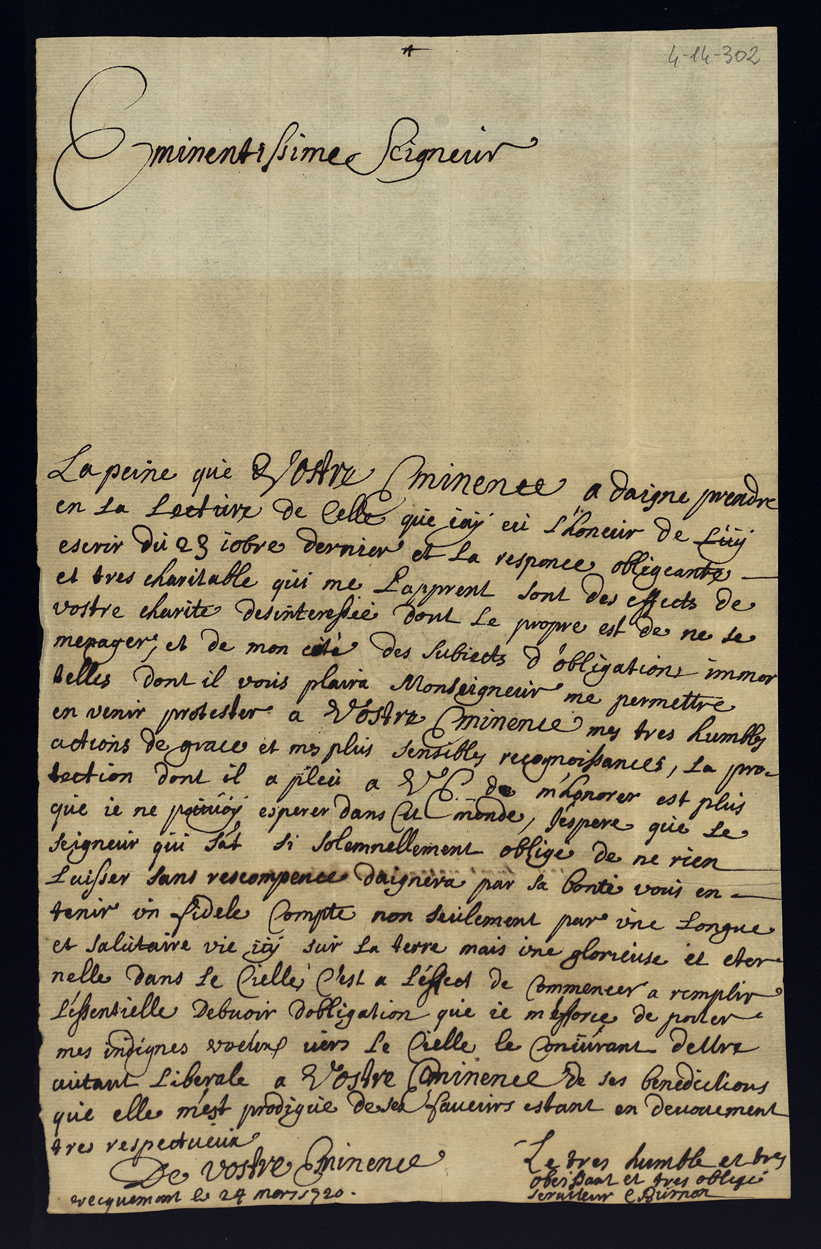 4-14-302
Eminentissime Seigneur
La peine que Vostre Eminence a daigne prendre
en La Lecture de Celle que iaÿ eü L'honeur de Luÿ
escrir du 23 iobre dernier et La responce obligeante
et tres charitable qui me L'apprent sont des effects de
vostre charité desinteressée dont Le propre est de ne se
menager, et de mon cité des Subiects d'obligations immor
telles dont il vous plaira Monseigneur me permettre
en venir protester a Vostre Eminence mes tres humbles
actions de grace et mes plus sensibles recognoissances, La pro-
tection dont il a pleü a V. E. de m'honorer est plus
que ie ne pouuoÿ esperer dans Cet monde, J'espere que Le
Seigneur qui s'ât si solemnellement obligé de ne rien
Laisser sans rescompence daignera par sa bonté vous en
tenir vn fidele Compte non seulement par vne Longue
et salutaire vie iÿ sur La terre mais vne glorieuse et eter
nelle dans Le Cielle, C'est a L'effect de Commencer a remplir
L'éssentielle Debuoir d'obligation que ie m'éfforce de porter
mes indignes voeux vers Le Cielle le Coniürant dettre
autant Liberale a Vostre Eminence De ses benedictions
que elle m'est prodigue de ses faueurs estant en deuouement
tres respectueux
De Vostre Eminence
Le tres humble et tres
obeissant et tres obligé
seruiteur
vecquemont le 24 mars 1720.